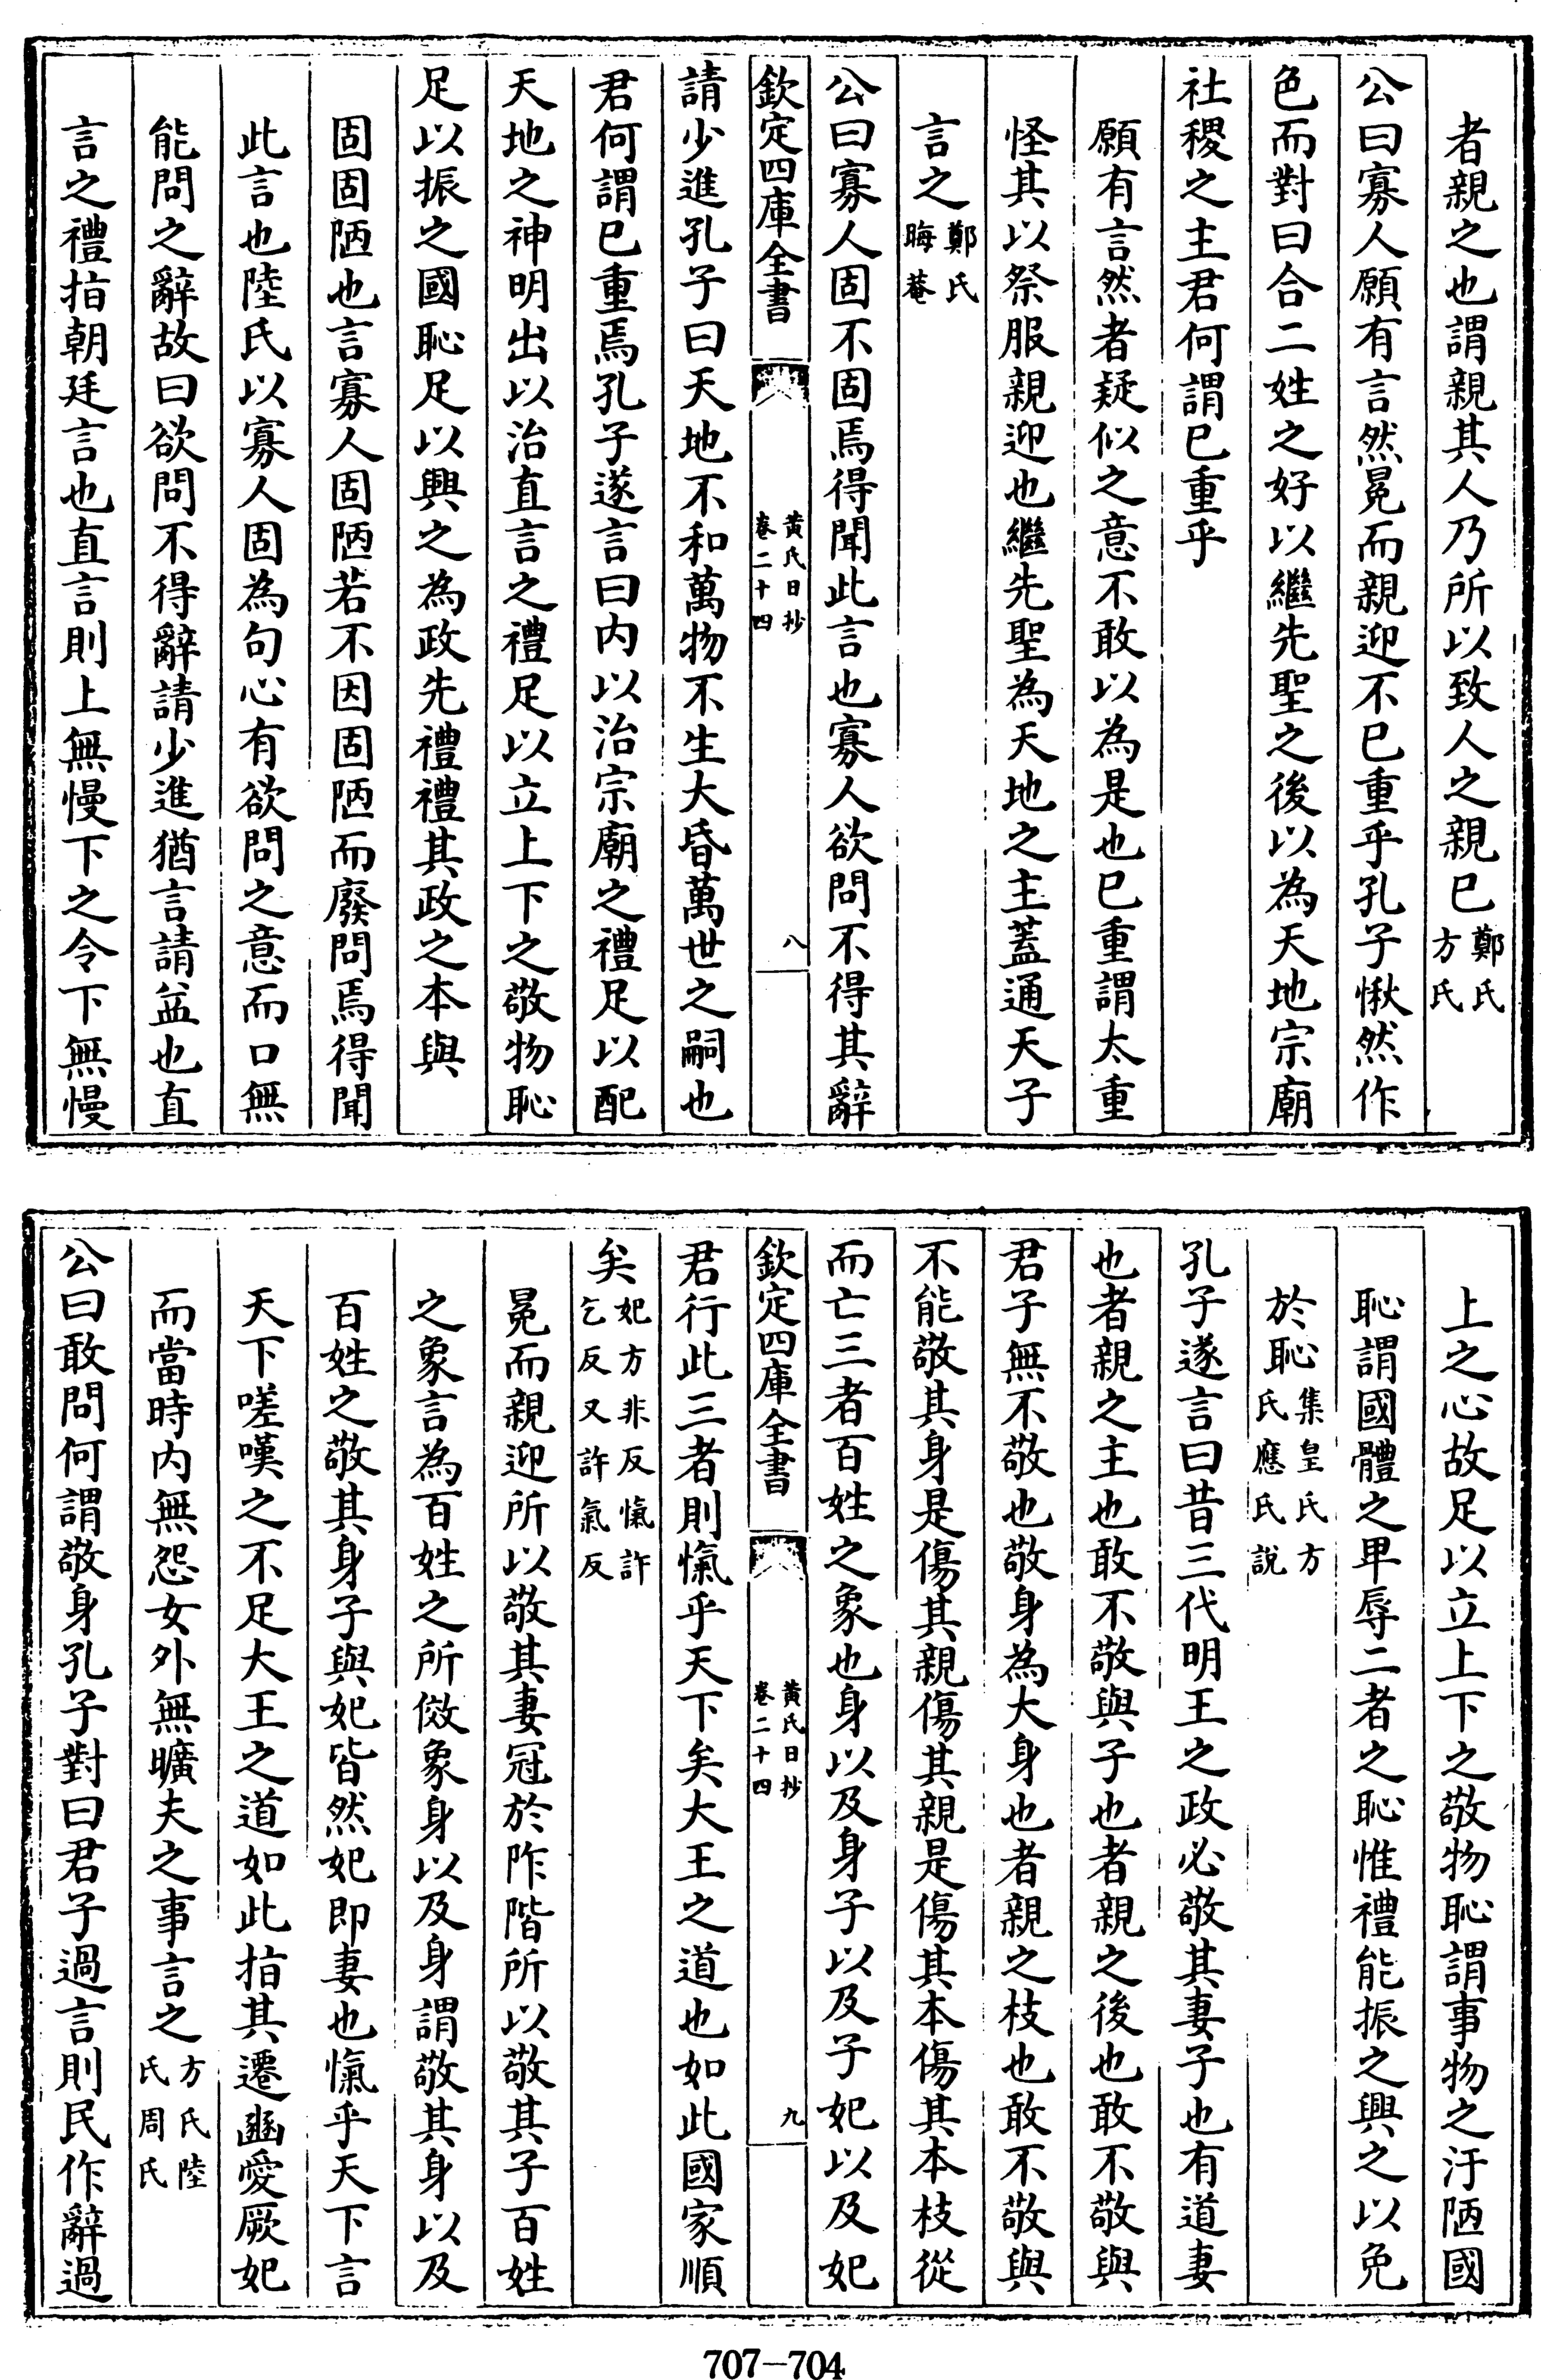 者親之也謂親其人乃所以致人之親已鄭氏方氏
公曰寡人願有言然冕而親迎不已重乎孔子愀然作
色而對曰合二姓之好以繼先聖之後以為天地宗廟
社稷之主君何謂已重乎
願有言然者疑似之意不敢以為是也已重謂太重
怪其以祭服親迎也繼先聖為天地之主蓋通天子
言之鄭氏晦菴
公曰寡人固不固焉得聞此言也寡人欲問不得其辭
欽定四庫全書 黃氏日抄卷二十四 八
請少進孔子曰天地不和萬物不生大昏萬世之嗣也
君何謂已重焉孔子遂言曰内以治宗廟之禮足以配
天地之神明出以治直言之禮足以立上下之敬物恥
足以振之國恥足以興之為政先禮禮其政之本與
固固陋也言寡人固陋若不因固陋而廢問焉得聞
此言也陸氏以寡人固為句心有欲問之意而口無
能問之辭故曰欲問不得辭請少進猶言請益也直
言之禮指朝廷言也直言則上無慢下之令下無慢
上之心故足以立上下之敬物恥謂事物之汙陋國
恥謂國體之卑辱二者之恥惟禮能振之興之以免
於恥集皇氏方氏應氏說
孔子遂言曰昔三代明王之政必敬其妻子也有道妻
也者親之主也敢不敬與子也者親之後也敢不敬與
君子無不敬也敬身為大身也者親之枝也敢不敬與
不能敬其身是傷其親傷其親是傷其本傷其本枝從
而亡三者百姓之象也身以及身子以及子妃以及妃
欽定四庫全書 黃氏日抄卷二十四 九
君行此三者則愾乎天下矣大王之道也如此國家順
矣妃方非反愾許乞反又許氣反
冕而親迎所以敬其妻冠於阼階所以敬其子百姓
之象言為百姓之所傚象身以及身謂敬其身以及
百姓之敬其身子與妃皆然妃即妻也愾乎天下言
天下嗟嘆之不足大王之道如此指其遷豳愛厥妃
而當時内無怨女外無曠夫之事言之方氏陸氏周氏
公曰敢問何謂敬身孔子對曰君子過言則民作辭過
707—704